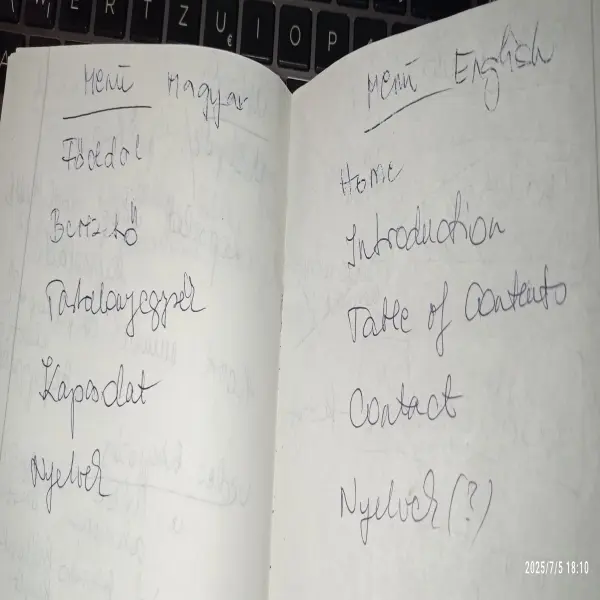 E R T Z U I O P
€
Menü Magyar
Főoldal
Bemz tő
Tartalomjegyzék
Kapcsolat
Nyelvek
Menü English
Home
Introduction
Table of Contents
Contact
Nyelvek (?)
2025/7/5 18:10